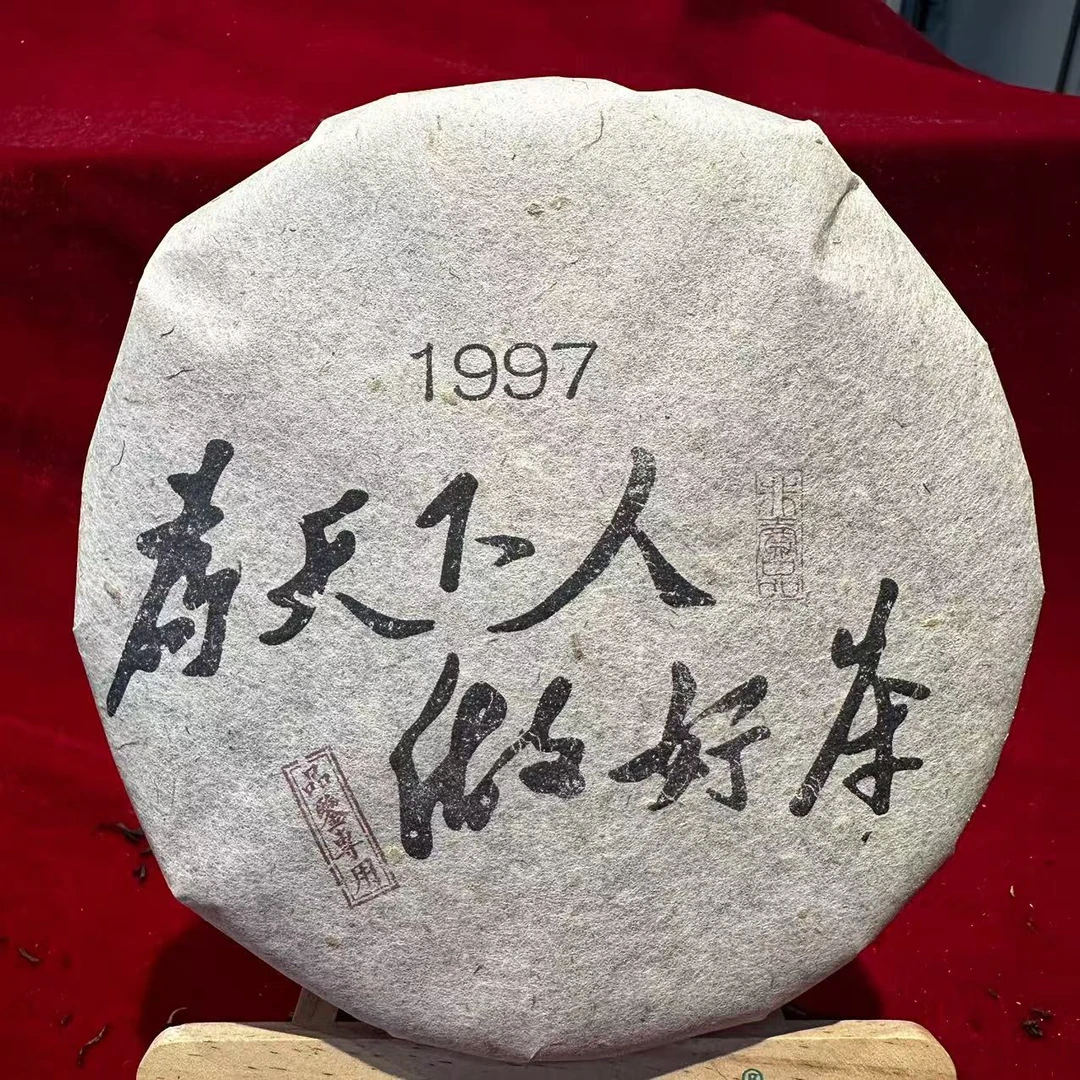 1997
為天下人
做好茶
品鑒專用
®